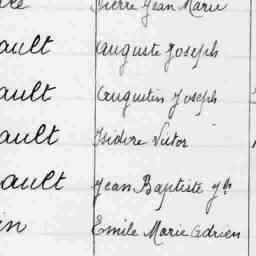 Pierre Jean Marie
ault Auguste Joseph
ault Augustin Joseph
ault Isidore Victor
ault Jean Baptiste Jh
in Emile Marie Adrien